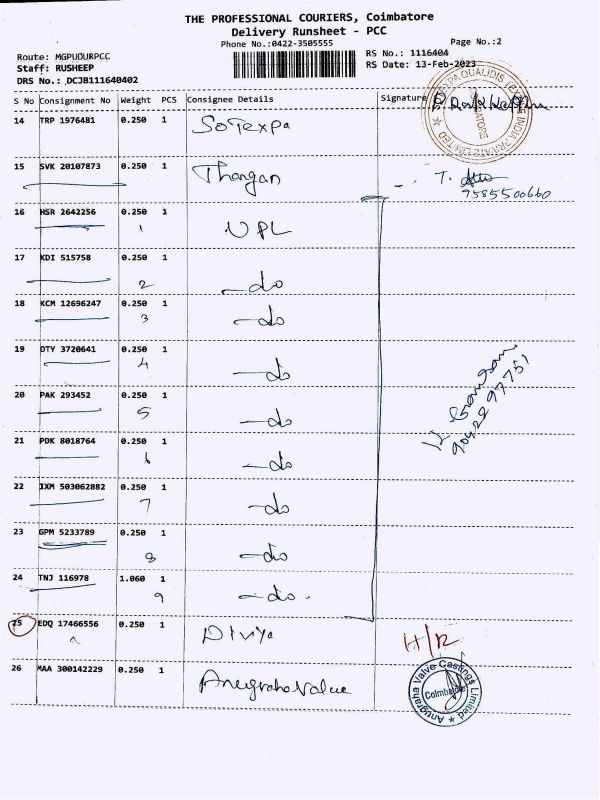 THE PROFESSIONAL COURIERS, Coimbatore
Delivery Runsheet - PCC
Phone No.:0422-3505555
Page No.:2
Route: MGPUDURPCC
RS No.: 1116404
Staff: RUSHEEP
RS Date: 13-Feb-2023
DRS No.: DCJB111640402
S No Consignment No Weight PCS Consignee Details Signature
14 TRP 1976481 0.250 1 Sotexpa
SOTEXPA QUALIDIS TEXTILE INDIA PRIVATE LIMITED ★ COIMBATORE
15 SVK 20107873 0.250 1 Thangan T.
9585500660
16 HSR 2642256 0.250 1 UPL
1
17 KDI 515758 0.250 1 -do
2
18 KCM 12696247 0.250 1 -do
3
19 DTY 3720641 0.250 1 -do
4
20 PAK 293452 0.250 1 -do
5
21 PDK 8018764 0.250 1 -do
6
22 IXM 503062882 0.250 1 -do
7
23 GPM 5233789 0.250 1 -do
8
24 TNJ 116978 1.060 1 -do.
9
9042297751
25 EDQ 17466556 0.250 1 Divya H/R
26 MAA 300142229 0.250 1 Anugraha Value
Anugraha Valve Castings Limited ★ Coimbatore